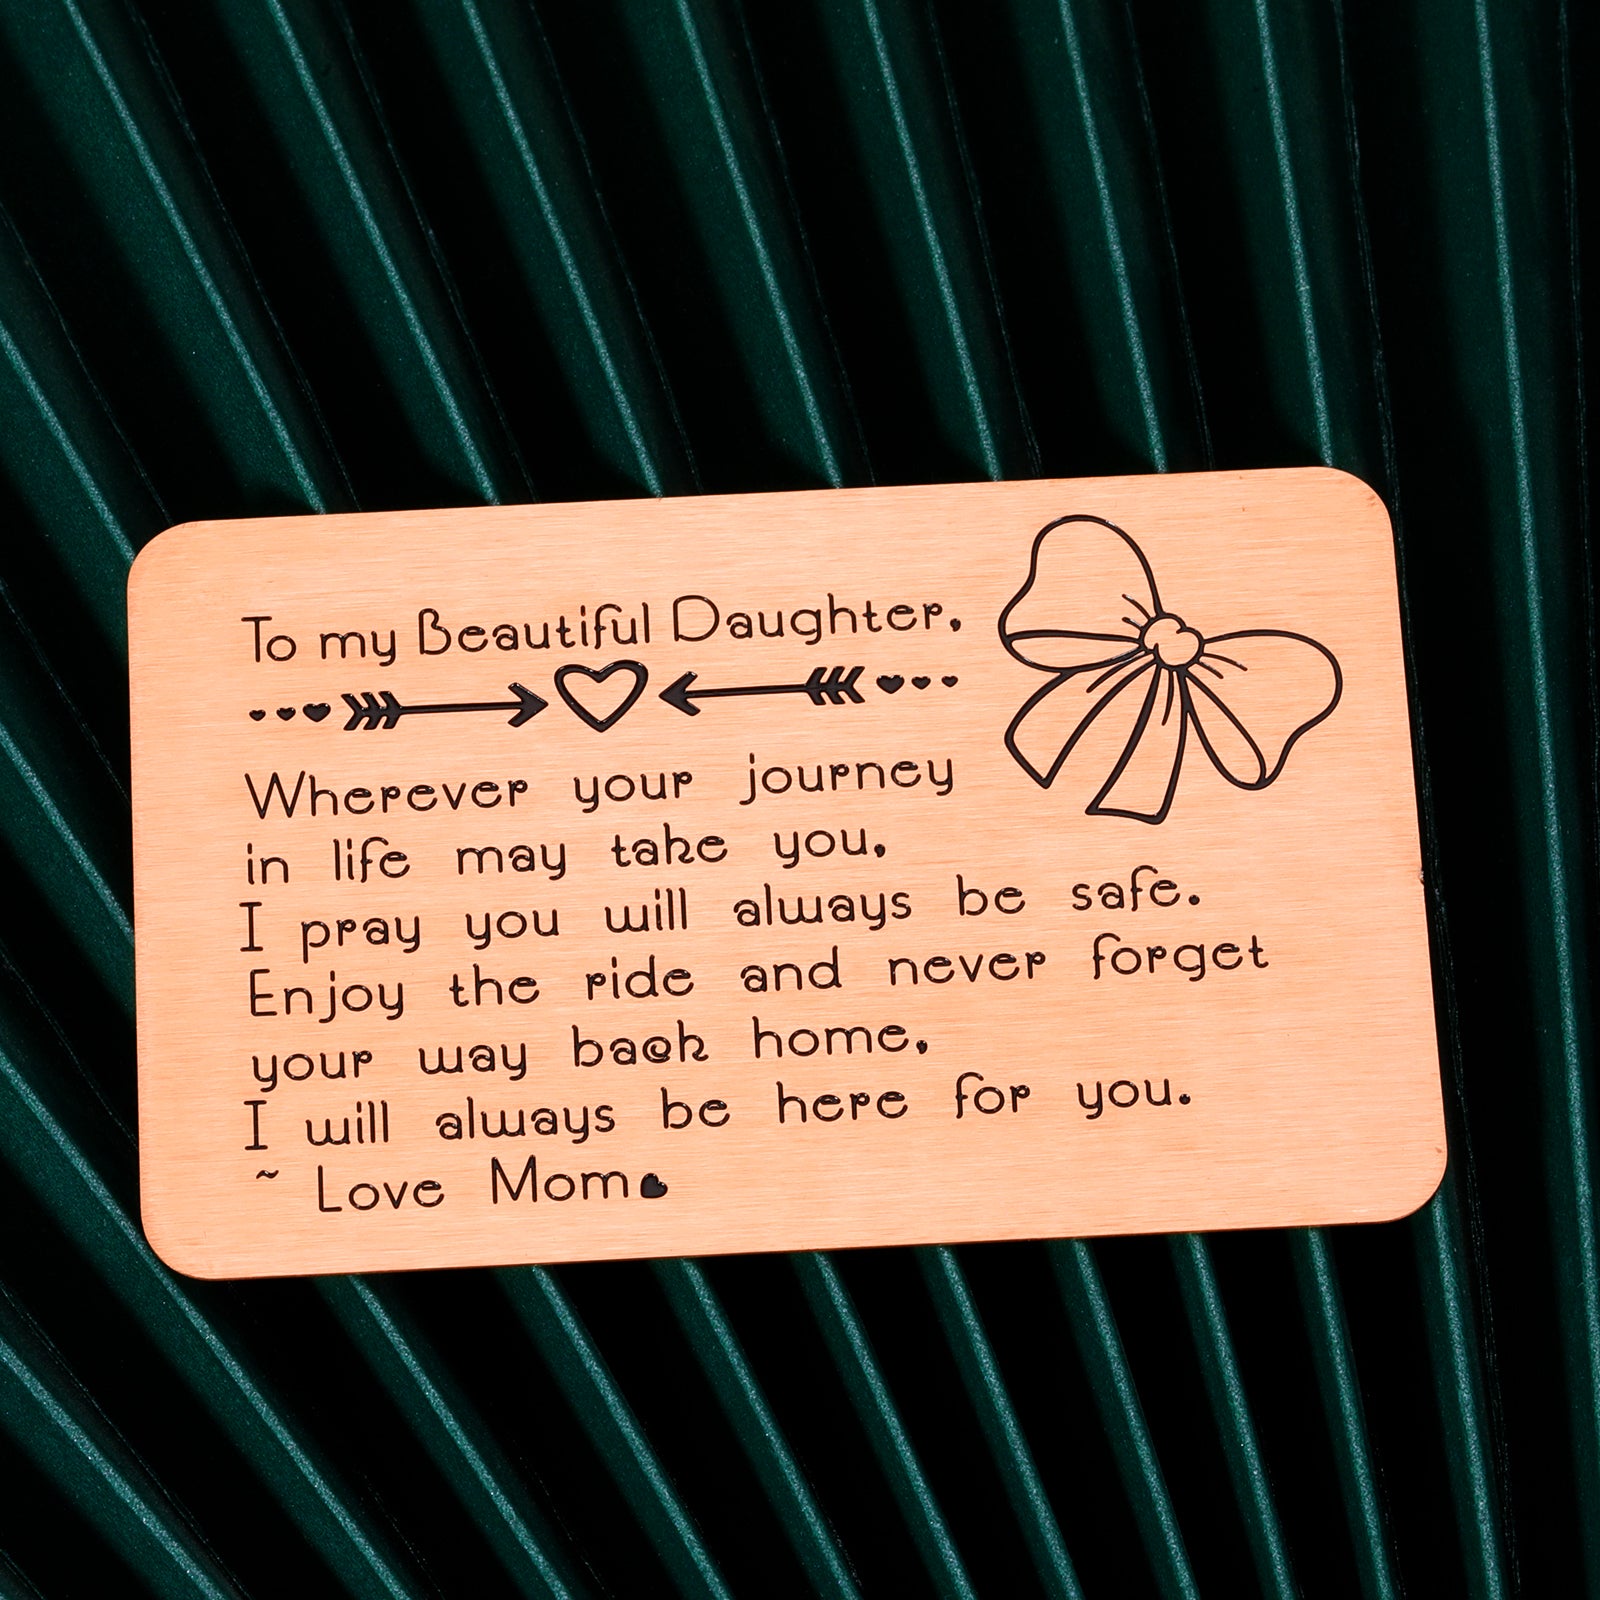 To my Beautiful Daughter,
Wherever your journey
in life may take you,
I pray you will always be safe.
Enjoy the ride and never forget
your way back home,
I will always be here for you.
~ Love Mom